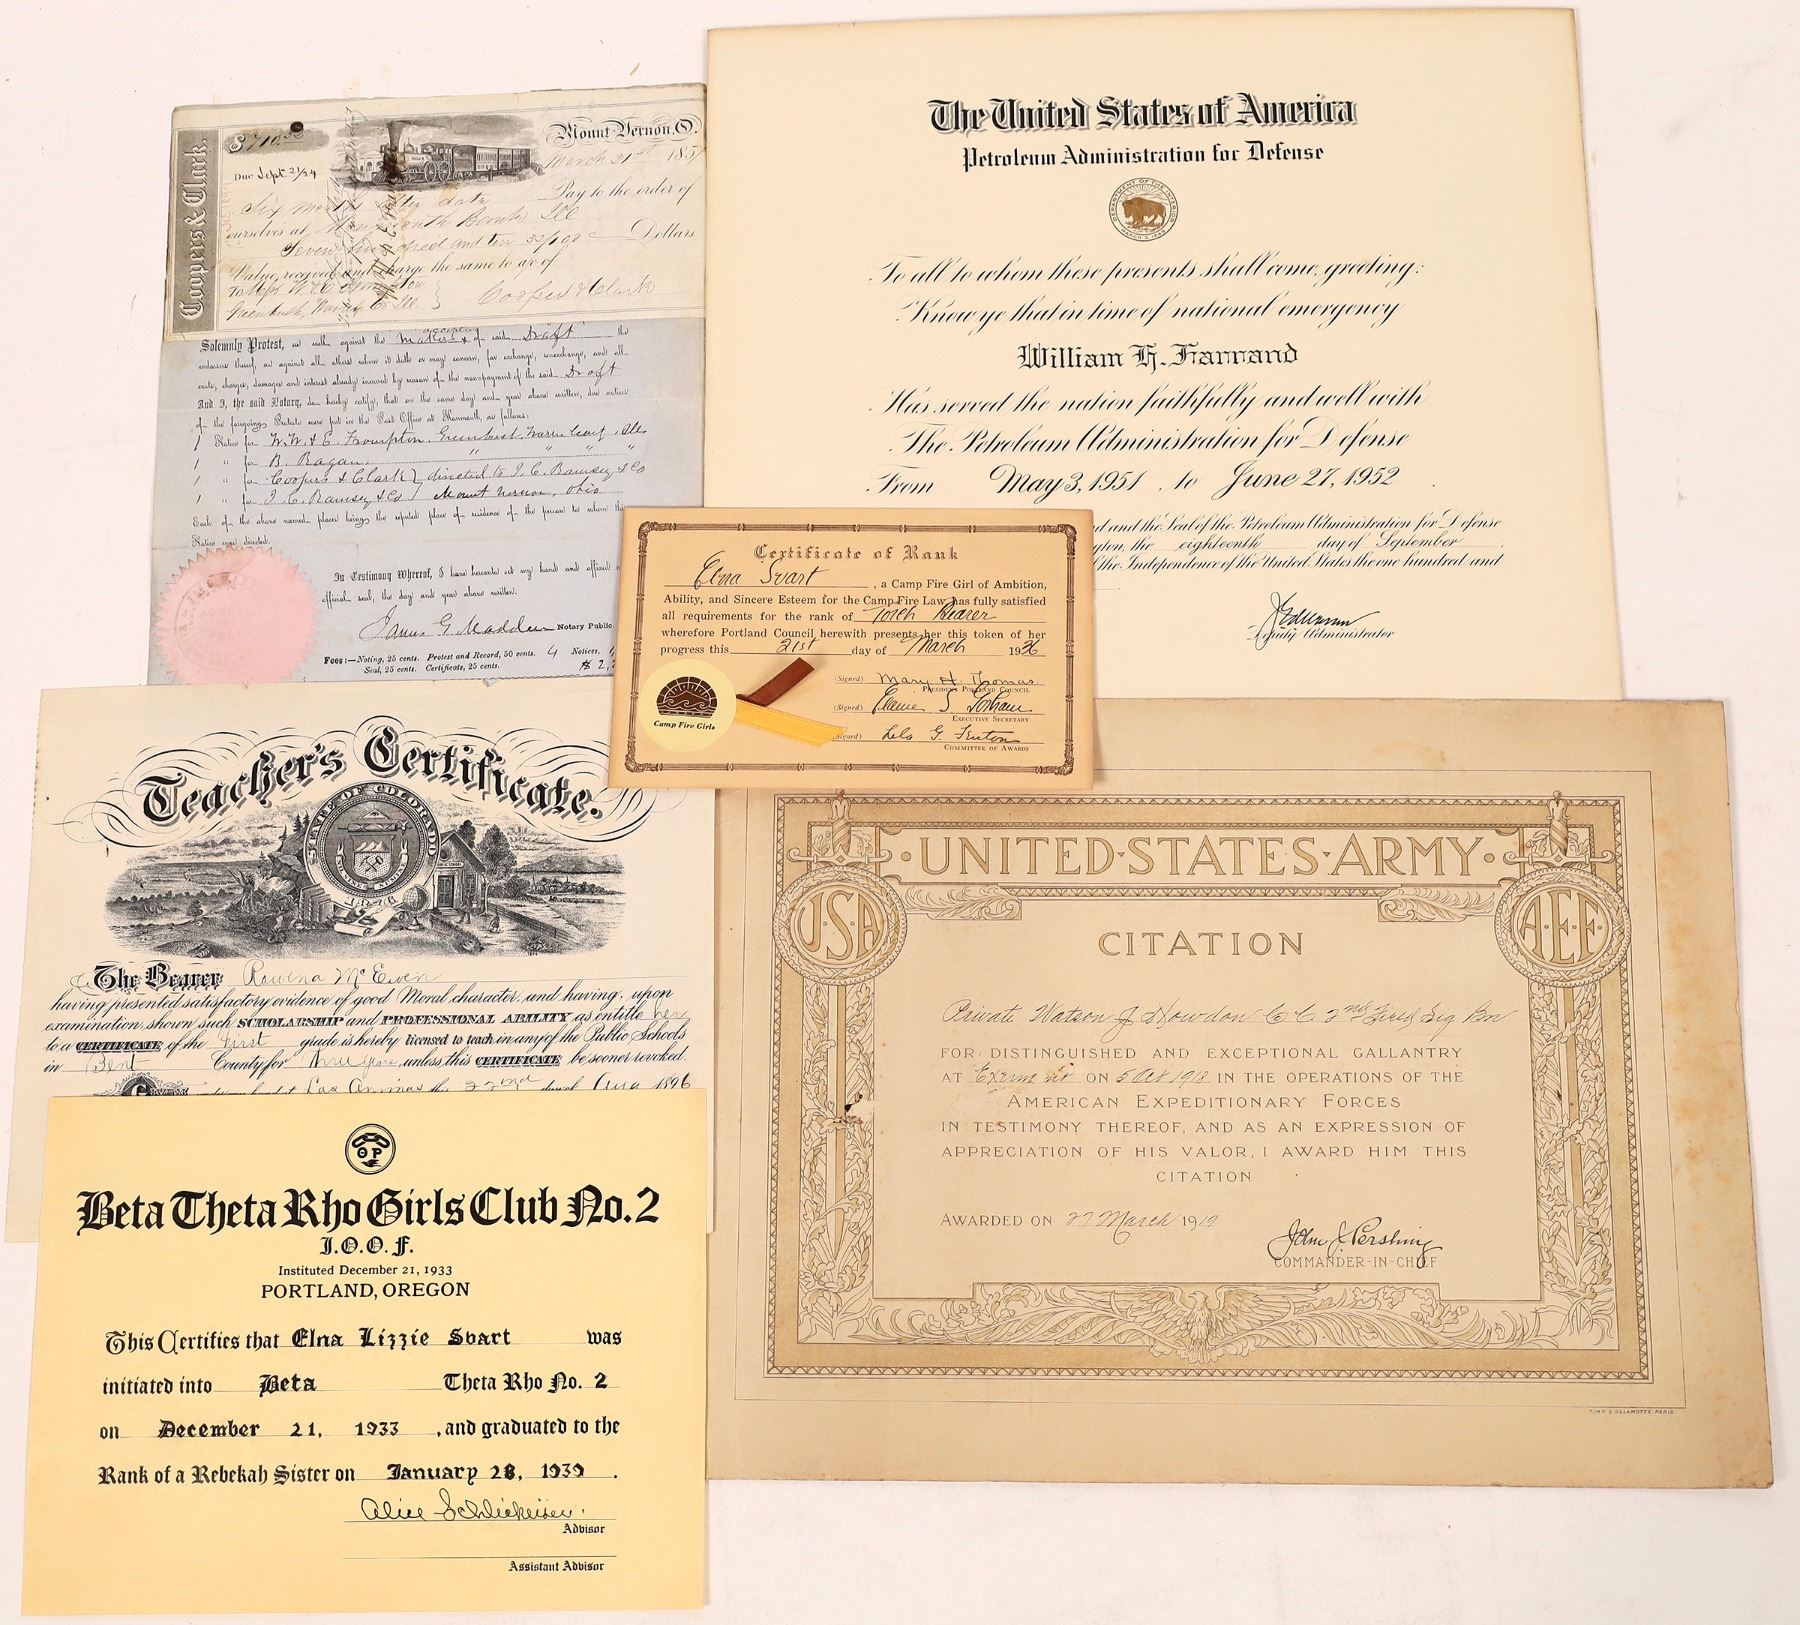 Coopers & Clark.
$710.32
Mount Vernon, O.
March 21st 185
Due Sept. 21/24
Six months after date Pay to the order of
ourselves at Bank Ill
Seven hundred and ten 32/100 Dollars
Value received and charge the same to a/c of
Greenbush, Warren Co Ill.
Coopers & Clark
Solemnly Protest, as well against the makers & of said Draft the
endorsers thereof, as against all others whom it doth or may concern, for exchange, re-exchange, and all
costs, charges, damages and interest already incurred by reason of the non-payment of the said Draft
And I, the said Notary, do hereby certify, that on the same day and year above written, due notices
of the foregoing Protest were put in the Post Office at Monmouth, as follows:
1 Notice for W. W. & E. Frompton, Greenbush Warren County, Ills
1 " for B. Ragan " " " "
1 " for Coopers & Clark } directed to I. C. Ramsey & Co
1 " for I. C. Ramsey & Co } Mount Vernon, Ohio
Each of the above named places being the reputed place of residence of the person to whom this
Notice was directed.
In Testimony Whereof, I have hereunto set my hand and official
official seal, the day and year above written.
James G. Madden Notary Public.
Fees:—Noting, 25 cents. Protest and Record, 50 cents. 4 Notices,
Seal, 25 cents. Certificate, 25 cents. $2,
The United States of America
Petroleum Administration for Defense
DEPARTMENT OF THE INTERIOR
MARCH 3, 1849
To all to whom these presents shall come, greeting:
Know ye that in time of national emergency
William H. Harrand
Has served the nation faithfully and well with
The Petroleum Administration for Defense
From May 3, 1951, to June 27, 1952.
and the Seal of the Petroleum Administration for Defense
the eighteenth day of September
the Independence of the United States the one hundred and
Deputy Administrator
Certificate of Rank
Elna Svart, a Camp Fire Girl of Ambition,
Ability, and Sincere Esteem for the Camp Fire Law has fully satisfied
all requirements for the rank of Torch Bearer
wherefore Portland Council herewith presents her this token of her
progress this 21st day of March 1936
(Signed) Mary H. Thomas
President Portland Council
(Signed) Elaine S.
Executive Secretary
(Signed) Lela G. Fenton
Committee of Awards
Camp Fire Girls
Teacher's Certificate.
STATE OF COLORADO
NIL SINE NUMINE
1876
The Bearer Rowena McEwen
having presented satisfactory evidence of good Moral character, and having, upon
examination shown such SCHOLARSHIP and PROFESSIONAL ABILITY as entitle her
to a CERTIFICATE of the first grade is hereby licensed to teach in any of the Public Schools
in Bent County for three years, unless this CERTIFICATE be sooner revoked.
Given under my hand at Las Animas this 22nd day of Aug 1896
UNITED·STATES·ARMY
U·S·A
A·E·F
CITATION
Private Watson J Howdon C C. 2nd Field Sig Bn
FOR DISTINGUISHED AND EXCEPTIONAL GALLANTRY
AT Exermont ON 5 Oct 1918 IN THE OPERATIONS OF THE
AMERICAN EXPEDITIONARY FORCES
IN TESTIMONY THEREOF, AND AS AN EXPRESSION OF
APPRECIATION OF HIS VALOR, I AWARD HIM THIS
CITATION
AWARDED ON 27 March 1919
John J. Pershing
COMMANDER-IN-CHIEF
IMP. E. DELAMOTTE. PARIS
O P
Beta Theta Rho Girls Club No. 2
I. O. O. F.
Instituted December 21, 1933
PORTLAND, OREGON
This Certifies that Elna Lizzie Svart was
initiated into Beta Theta Rho No. 2
on December 21, 1933, and graduated to the
Rank of a Rebekah Sister on January 28, 1939.
Alice Schliekeisen
Advisor
Assistant Advisor